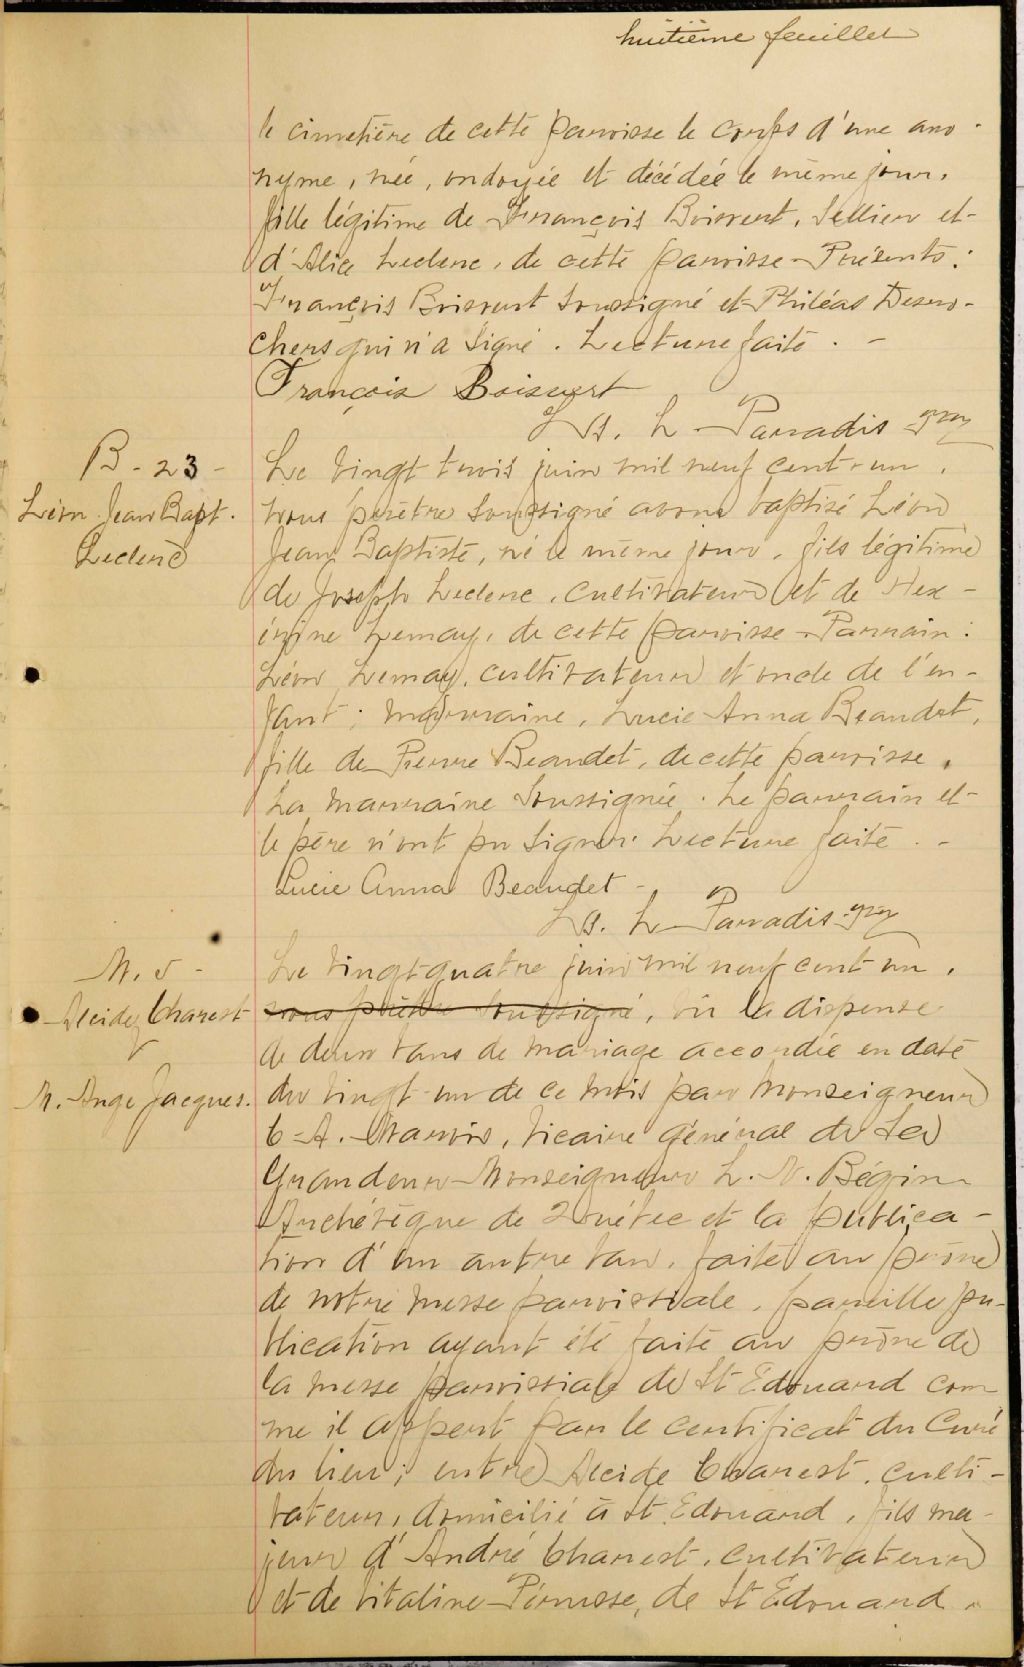 huitième feuillet
le cimetière de cette paroisse le corps d'une ano-
nyme, née, ondoyée et décédée le même jour,
fille légitime de François Boisvert, Sellier et
d'Alice Leclerc, de cette paroisse - Présents:
François Boisvert Soussigné et Philéas Desro-
chers qui n'a Signé. Lecture faite. -
François Boisvert
Ls. L Paradis
B - 23 -
Léon Jean Bapt.
Leclerc
Le vingt trois juin mil neuf cent-un,
nous prêtre Soussigné avons baptisé Léon
Jean Baptiste, né le même jour, fils légitime
de Joseph Leclerc, cultivateur et de
Lemay, de cette paroisse - Parrain:
Léon Lemay, cultivateur et oncle de l'en-
fant; marraine, Lucie-Anna Beaudet,
fille de Pierre Beaudet, de cette paroisse,
La marraine Soussignée. Le parrain et
le père n'ont pu Signer. Lecture faite. -
Lucie Anna Beaudet -
Ls. L - Paradis
M. 5 -
Alcide Charest
&
M. Ange Jacques.
Le vingt-quatre juin mil neuf cent un,
nous prêtre soussigné, vu la dispense
de deux bans de mariage accordée en date
du vingt-un de ce mois par Monseigneur
C-A. Marois, Vicaire général de Sa
Grandeur Monseigneur L. N. Bégin
Archevêque de Québec et la publica-
tion d'un autre ban, faite au prône
de notre messe paroissiale, pareille pu-
blication ayant été faite au prône de
la messe paroissiale de St Edouard com-
me il appert par le certificat du Curé
du lieu; entre Alcide Charest, culti-
vateur, domicilié à St Edouard, fils ma-
jeur d'André Charest, cultivateur
et de Vitaline Pérusse, de St Edouard,